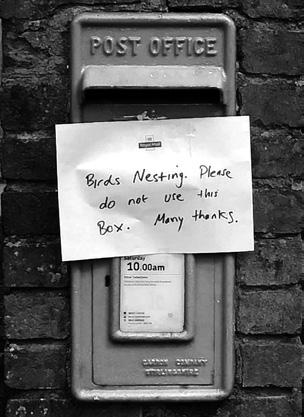 POST OFFICE
Royal Mail
Birds Nesting. Please
do not use this
Box. Many thanks.
Saturday
10.00am
CARRON COMPANY
STIRLINGSHIRE